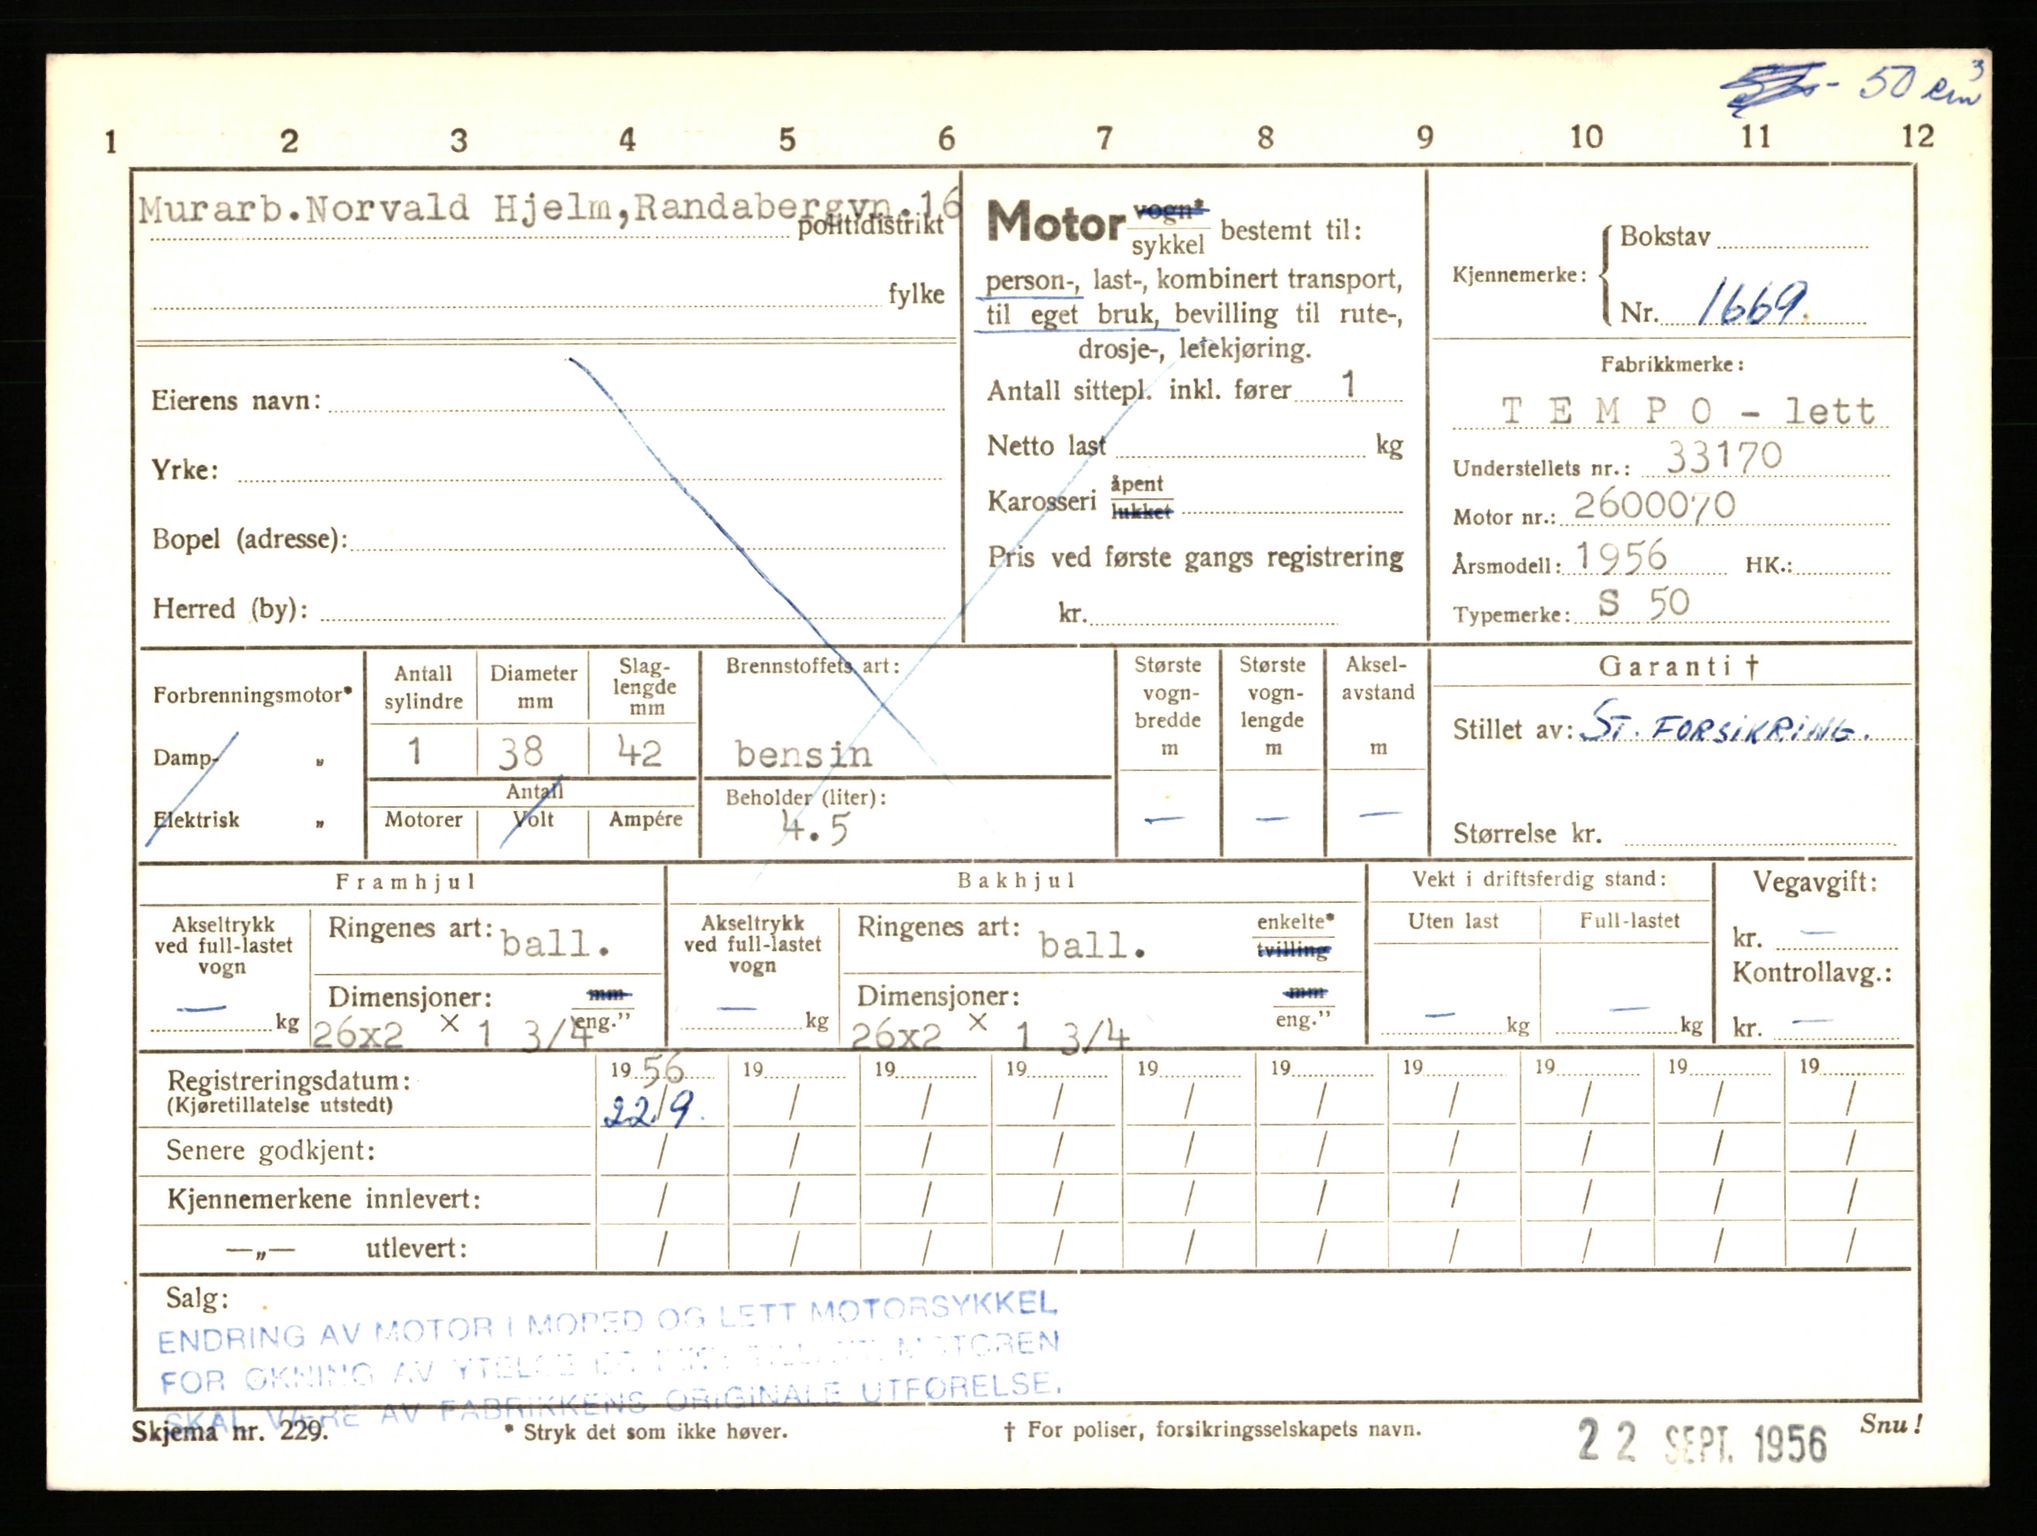 - 50 cm³
1 2 3 4 5 6 7 8 9 10 11 12
Murarb.Norvald Hjelm,Randabergvn.16
politidistrikt
fylke
Eierens navn:
Yrke:
Bopel (adresse):
Herred (by):
Motor vogn* sykkel bestemt til:
person-, last-, kombinert transport,
til eget bruk, bevilling til rute-,
drosje-, leiekjøring.
Antall sittepl. inkl. fører 1
Netto last kg
Karosseri åpent lukket
Pris ved første gangs registrering
kr.
Kjennemerke: Bokstav
Nr. 1669.
Fabrikkmerke:
T E M P O - lett
Understellets nr.: 33170
Motor nr.: 2600070
Årsmodell: 1956 HK.:
Typemerke: S 50
Forbrenningsmotor*
Damp- „
Elektrisk „
Antall sylindre
1
Diameter mm
38
Slag-
lengde
mm
42
Antall
Motorer Volt Ampére
Brennstoffets art:
bensin
Beholder (liter):
4.5
Største
vogn-
bredde
m
—
Største
vogn-
lengde
m
—
Aksel-
avstand
m
—
Garanti †
Stillet av: ST. FORSIKRING.
Størrelse kr.
Framhjul
Akseltrykk
ved full-lastet
vogn
— kg
Ringenes art: ball.
Dimensjoner: mm eng."
26x2 x 1 3/4
Bakhjul
Akseltrykk
ved full-lastet
vogn
— kg
Ringenes art: ball. enkelte* tvilling
Dimensjoner: mm eng."
26x2 x 1 3/4
Vekt i driftsferdig stand:
Uten last Full-lastet
— kg — kg
Vegavgift:
kr. —
Kontrollavg.:
kr. —
Registreringsdatum: 19 56 19 19 19 19 19 19 19 19 19
(Kjøretillatelse utstedt) 22/9. / / / / / / / / /
Senere godkjent: / / / / / / / / / /
Kjennemerkene innlevert: / / / / / / / / / /
—„— utlevert: / / / / / / / / / /
Salg:
ENDRING AV MOTOR I MOPED OG LETT MOTORSYKKEL
FOR ØKNING AV YTELSE MOTOREN
SKAL VÆRE AV FABRIKKENS ORIGINALE UTFØRELSE.
Skjema nr. 229. * Stryk det som ikke høver. † For poliser, forsikringsselskapets navn. 22 SEPT. 1956 Snu!